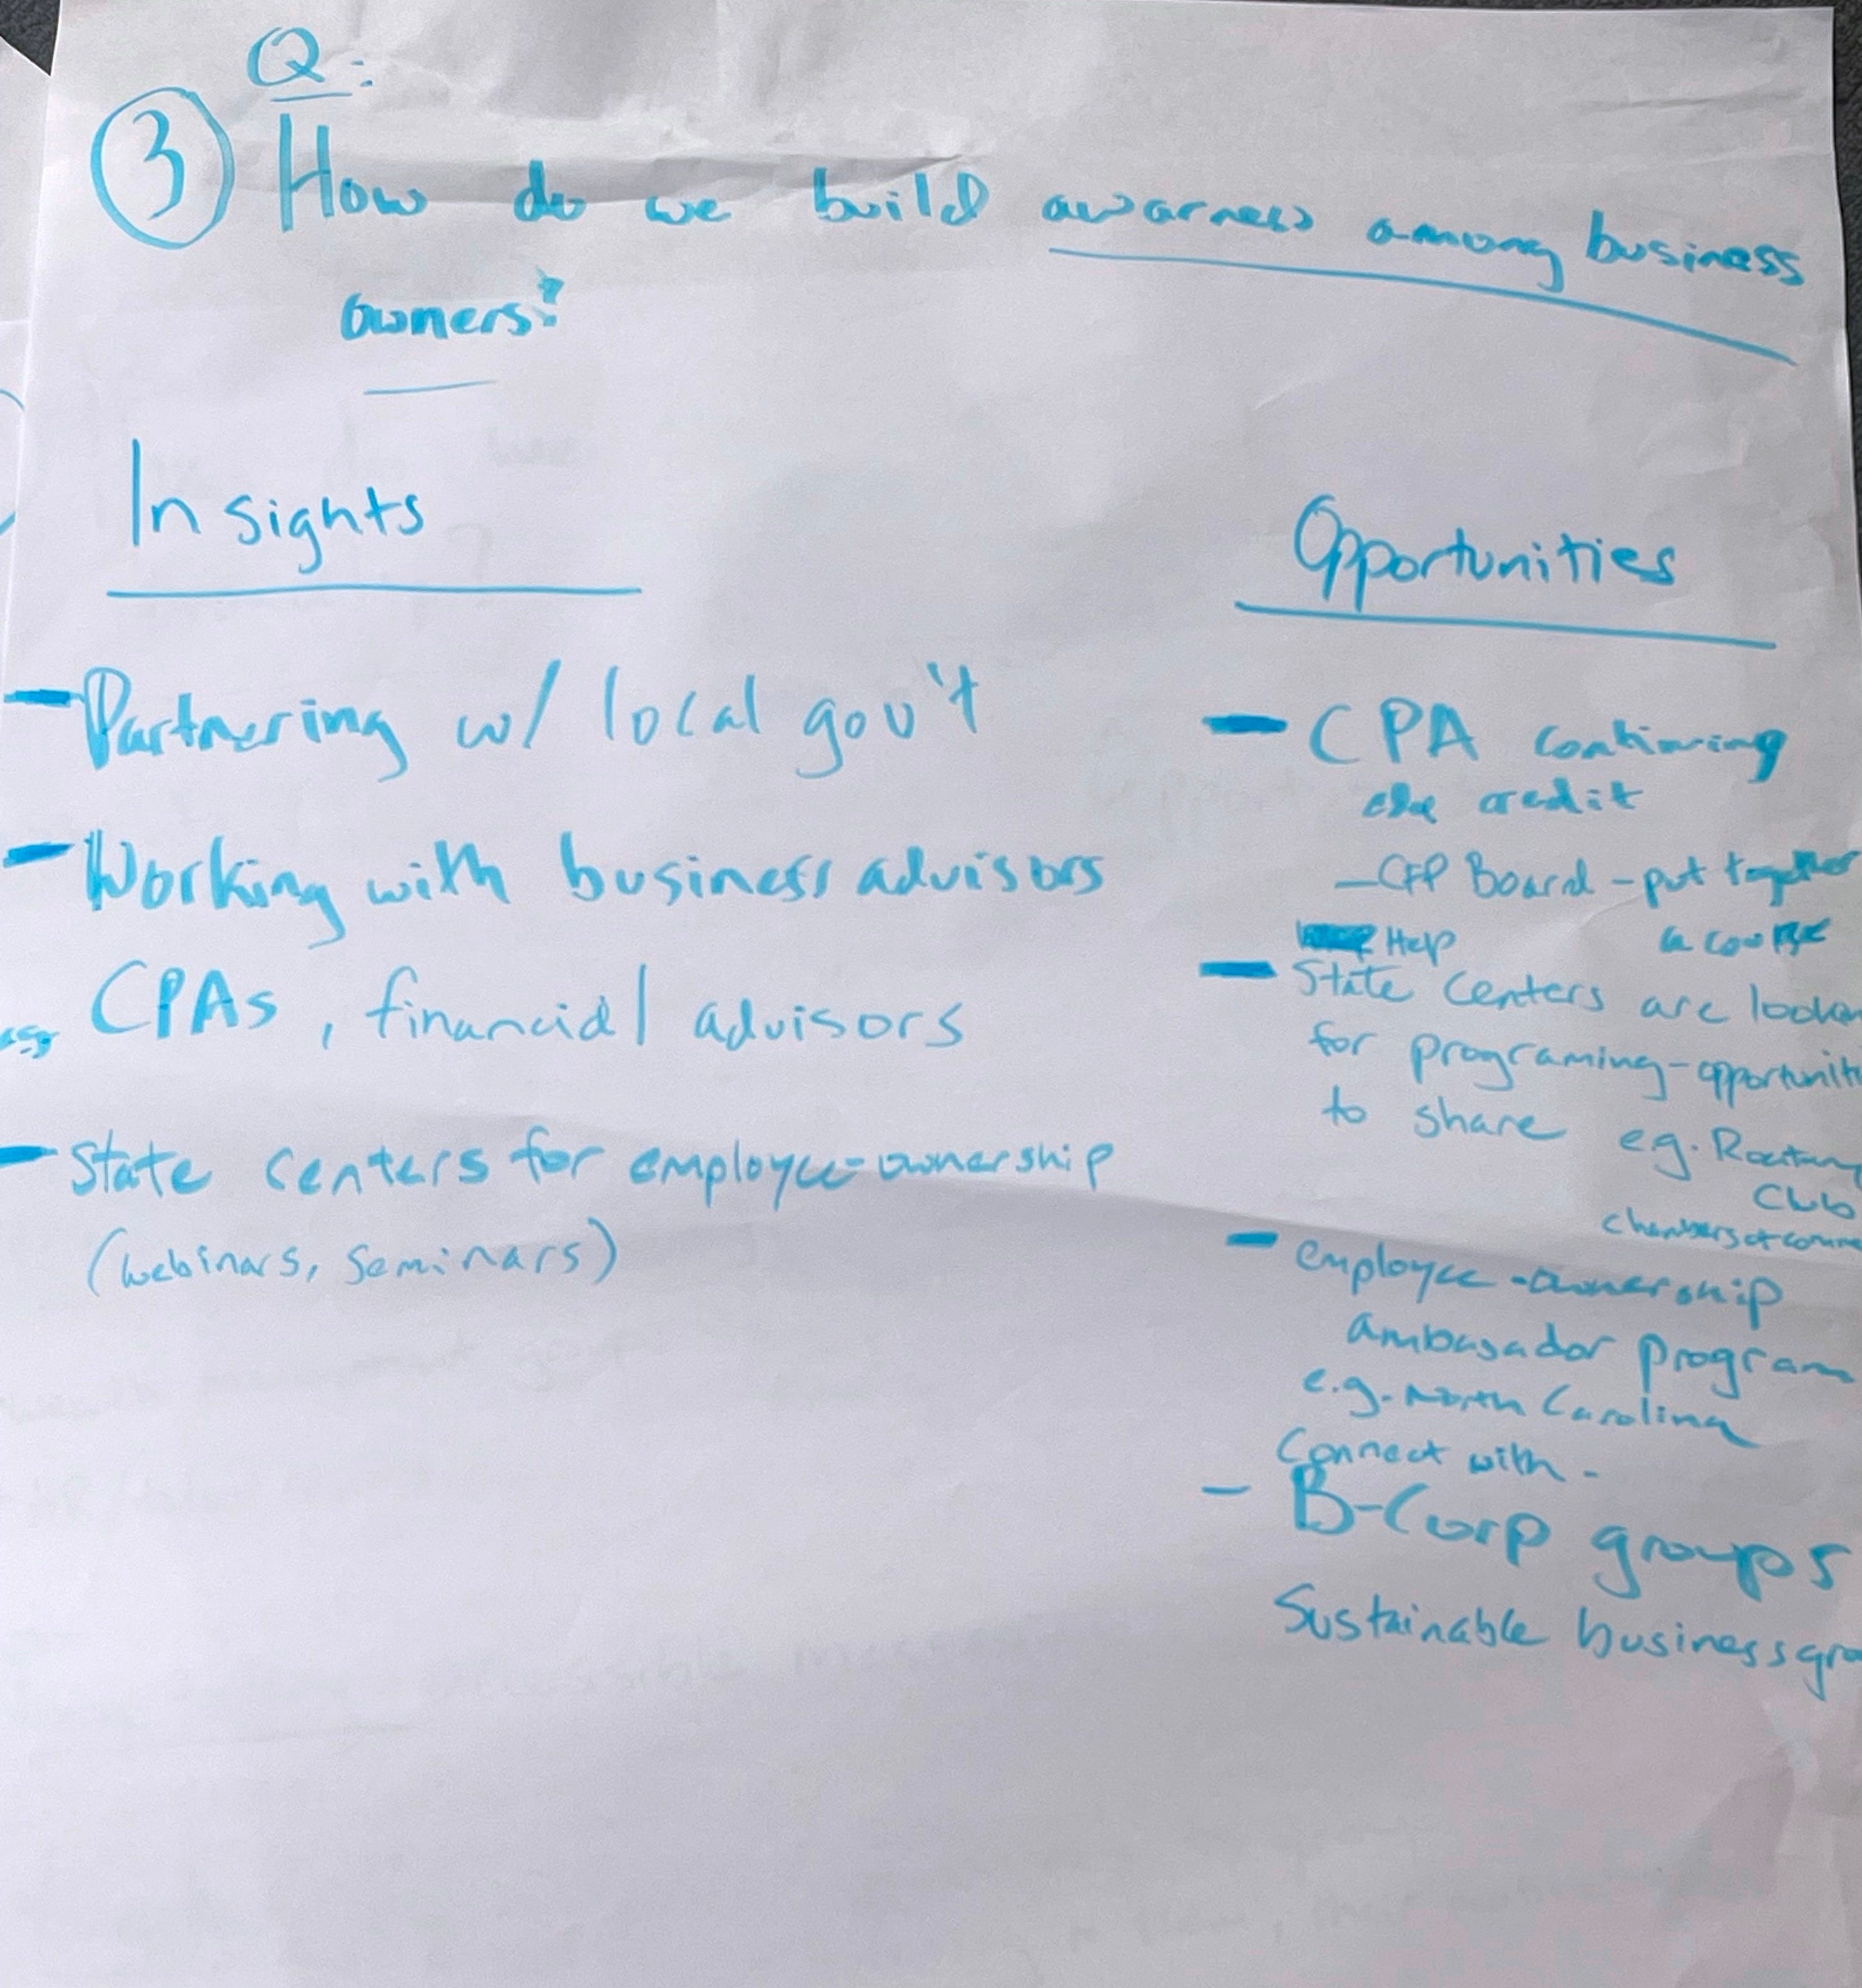 Q:
3 How do we build awarness among business
owners?
Insights
- Partnering w/ local gov't
- Working with business advisors
CPAs, financial advisors
- State centers for employee-ownership
(webinars, seminars)
Opportunities
- CPA continuing
credit
- CFP Board - put together
a course
Help
- State centers are
for programing - opportuniti
to share e.g.
Club
chambers of comme
- employee-ownership
ambasador program
e.g. North Carolina
Connect with -
- B-Corp groups
Sustainable business gro